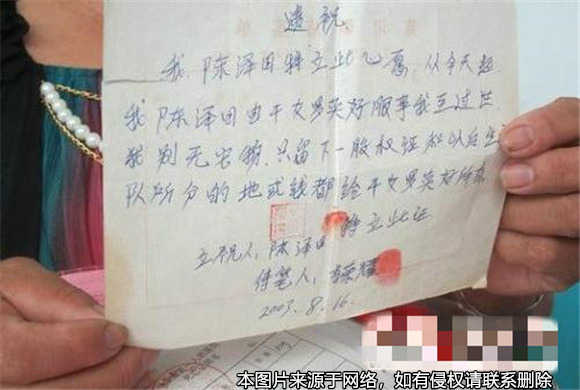 遗祝
我陈泽田特立此心愿，从今天起
我陈泽田由干女男英好服事我至过世
我别无它物，只留下一股权证和以后生
队所分的地或钱都给干女男英好所有
特立此证
立祝人，陈泽田
代笔人，荣耀
2003.8.16.
本图片来源于网络，如有侵权请联系删除